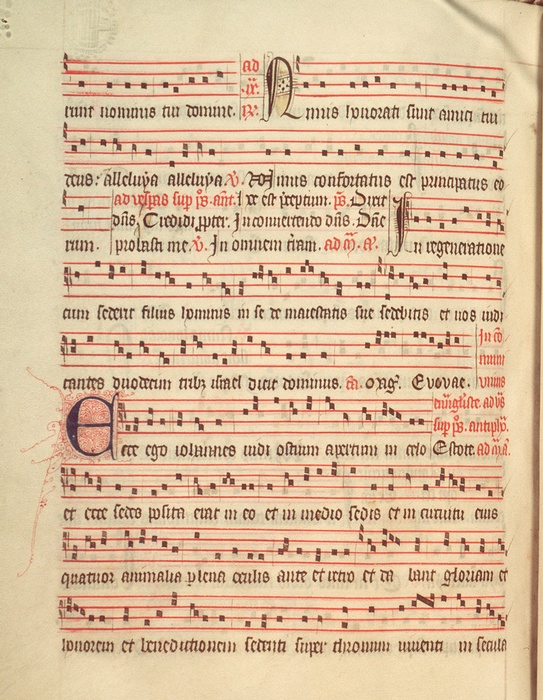 runt nominis tui domine. ad ix. R. Nimis honorati sunt amici tui
deus: alleluya alleluya V. Nimis confortatus est principatus eo
rum. ad vesperas sup ps. ant. Hoc est preceptum. ps. Dixit
dns. Credidi propter. In convertendo dns. Dne
probasti me V. In omnem tram. ad M. a. In regeneratione
cum sederit filius hominis in se de maiestatis sue sedebitis et vos iudi
cantes duodecim tribz israel dicit dominus. a. Evovae. In co
muni
unius
ewangliste ad vs
sup ps. antiph.
Ecce ego iohannes vidi ostium apertum in celo Estote. ad M. a.
et ecce sedes posita erat in eo et in medio sedis et in circuitu eius
quatuor animalia plena oculis ante et retro et da bant gloriam et
honorem et benedictionem sedenti super thronum viventi in secula